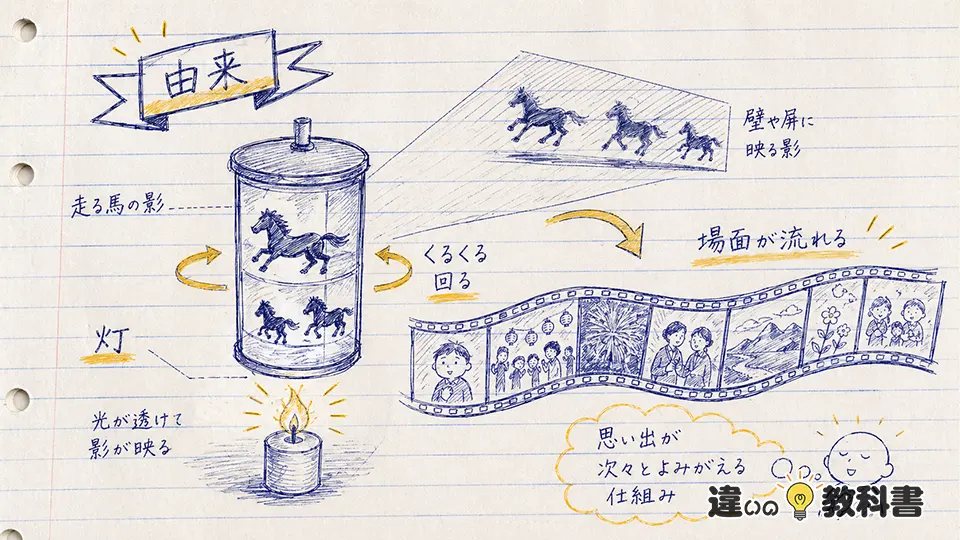 由来
走る馬の影
壁や屏に
映る影
くるくる
回る
場面が流れる
灯
光が透けて
影が映る
思い出が
次々とよみがえる
仕組み
違いの教科書